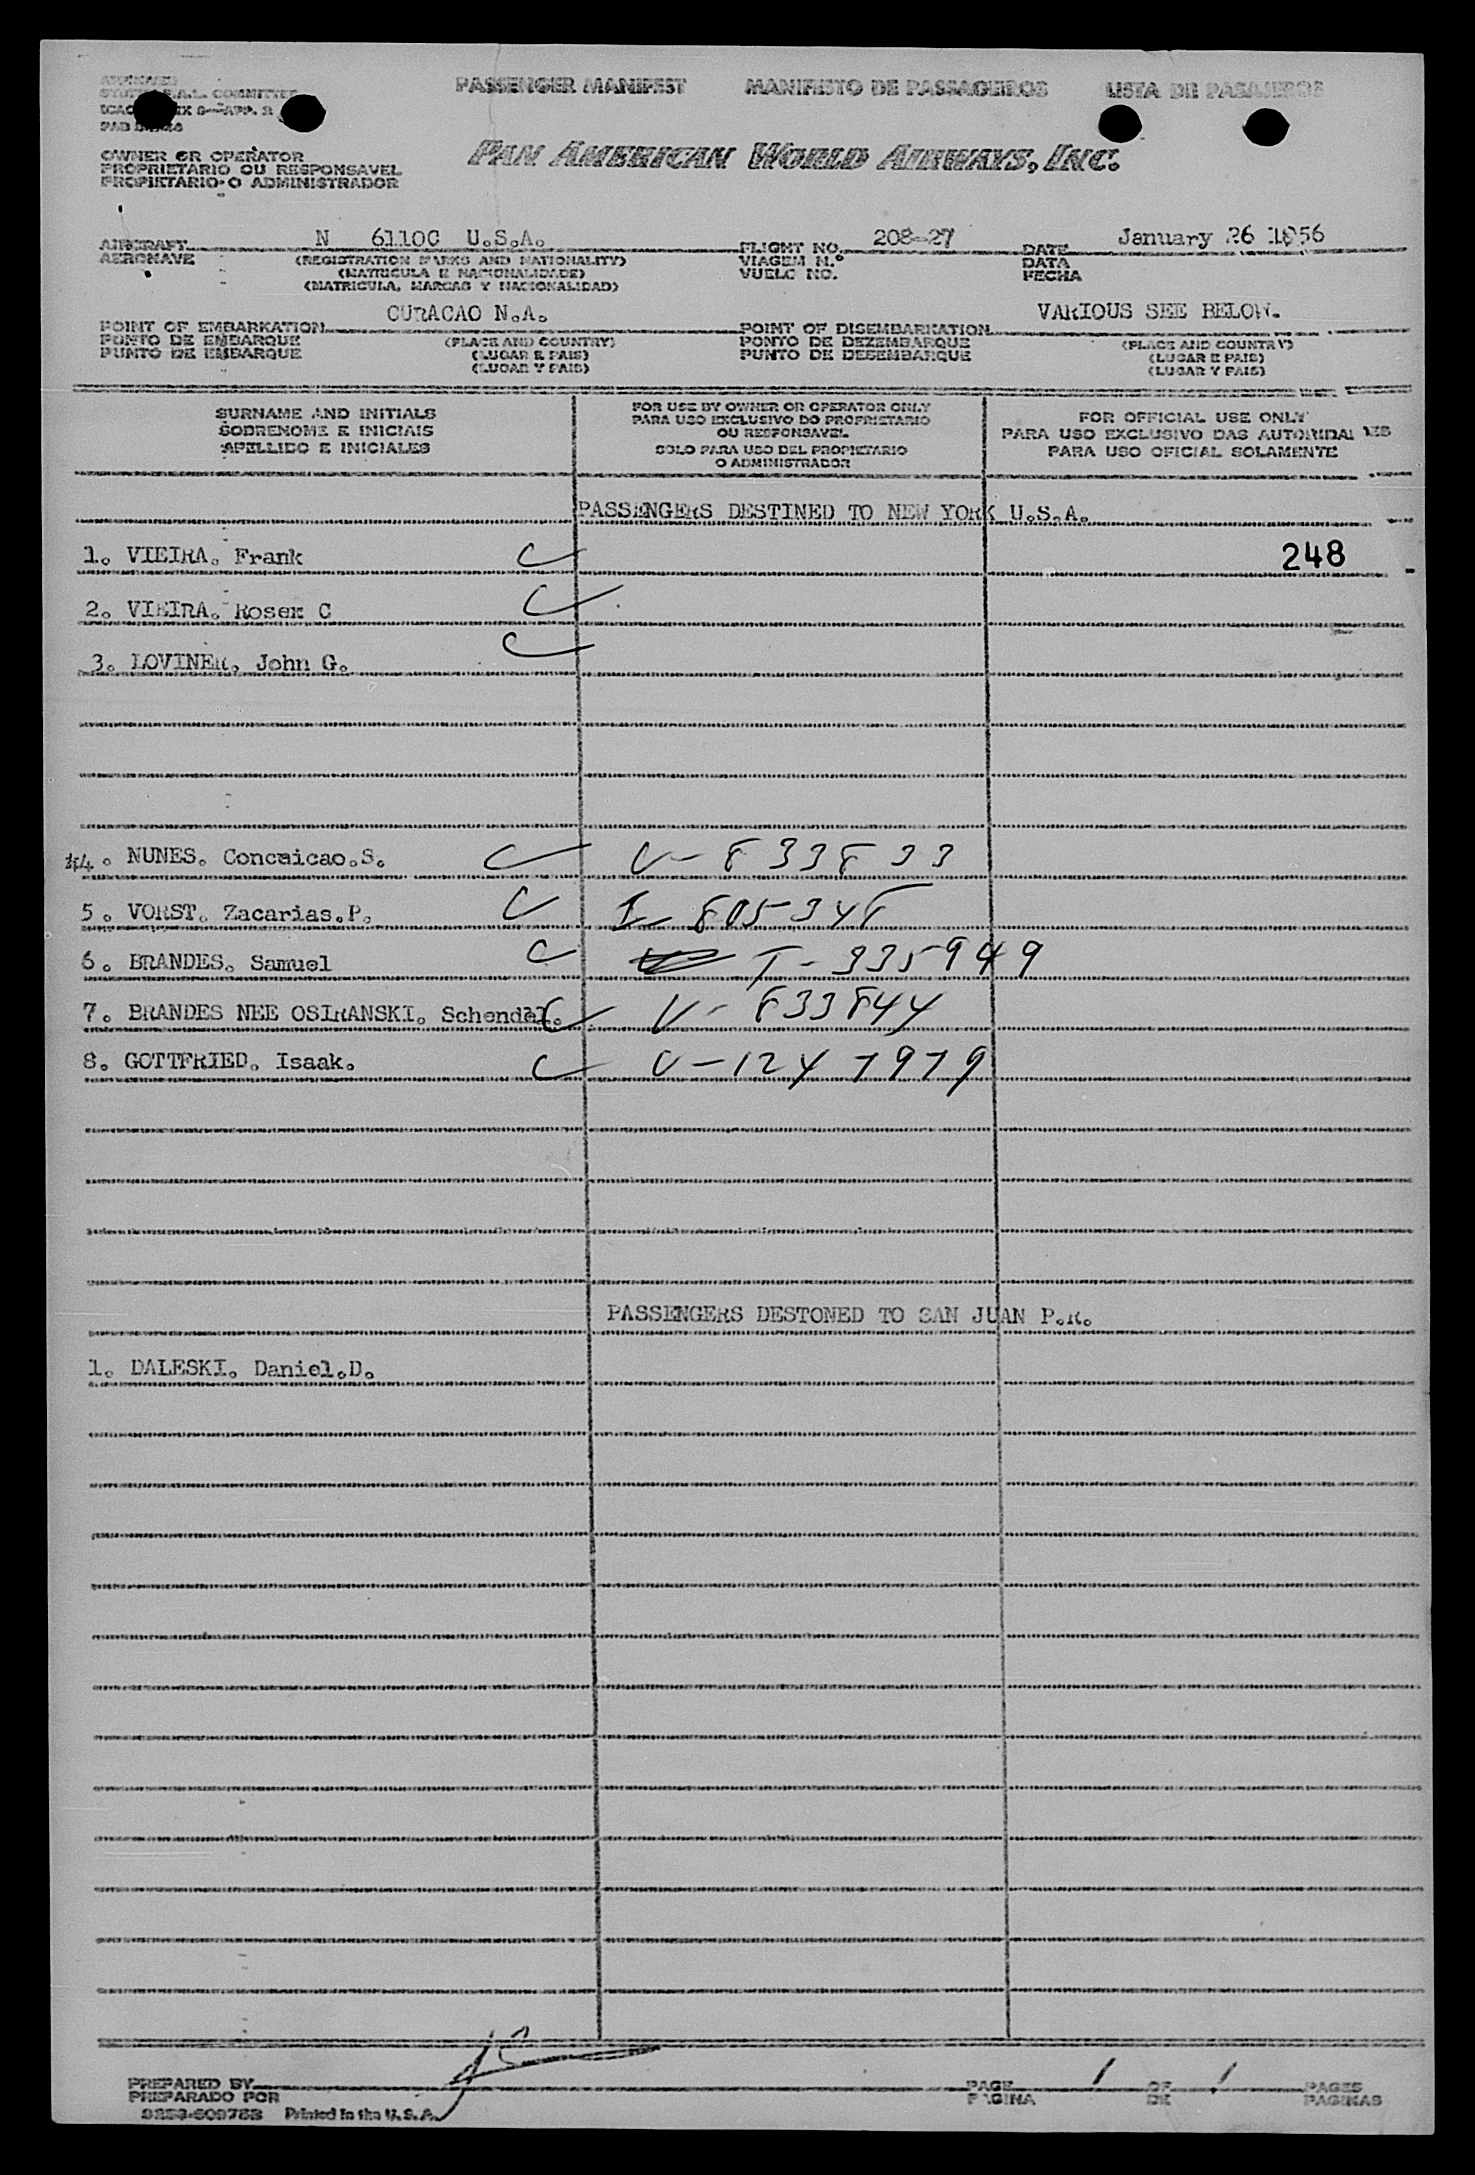 PASSENGER MANIFEST MANIFESTO DE PASSAGEIROS LISTA DE PASAJEROS
COMMITTEE
OWNER OR OPERATOR
PROPRIETARIO OU RESPONSAVEL
PROPIETARIO O ADMINISTRADOR
PAN AMERICAN WORLD AIRWAYS, INC.
AIRCRAFT N 6110C U.S.A. FLIGHT NO. 208-27 DATE January 26 1956
AERONAVE (REGISTRATION MARKS AND NATIONALITY) VIAGEM N.º DATA
(MATRICULA E NACIONALIDADE) VUELO NO. FECHA
(MATRICULA, MARCAS Y NACIONALIDAD)
POINT OF EMBARKATION CURACAO N.A. POINT OF DISEMBARKATION VARIOUS SEE BELOW.
PONTO DE EMBARQUE (PLACE AND COUNTRY) PONTO DE DEZEMBARQUE (PLACE AND COUNTRY)
PUNTO DE EMBARQUE (LUGAR E PAIS) PUNTO DE DESEMBARQUE (LUGAR E PAIS)
(LUGAR Y PAIS) (LUGAR Y PAIS)
SURNAME AND INITIALS
SOBRENOME E INICIAIS
APELLIDO E INICIALES
FOR USE BY OWNER OR OPERATOR ONLY
PARA USO EXCLUSIVO DO PROPRIETARIO
OU RESPONSAVEL
SOLO PARA USO DEL PROPIETARIO
O ADMINISTRADOR
FOR OFFICIAL USE ONLY
PARA USO EXCLUSIVO DAS AUTORIDADES
PARA USO OFICIAL SOLAMENTE
PASSENGERS DESTINED TO NEW YORK U.S.A.
1. VIEIRA. Frank 248
2. VIEIRA. Rosex C
3. LOVINER, John G.
#4. NUNES. Conceicao.S. V-833833
5. VORST. Zacarias.P. I-805348
6. BRANDES. Samuel T-335949
7. BRANDES NEE OSIRANSKI. Schendel. V-833844
8. GOTTFRIED. Isaak. V-1247979
PASSENGERS DESTONED TO SAN JUAN P.R.
1. DALESKI. Daniel.D.
PREPARED BY PAGE 1 OF 1 PAGES
PREPARADO POR PAGINA DE PAGINAS
Printed in the U.S.A.